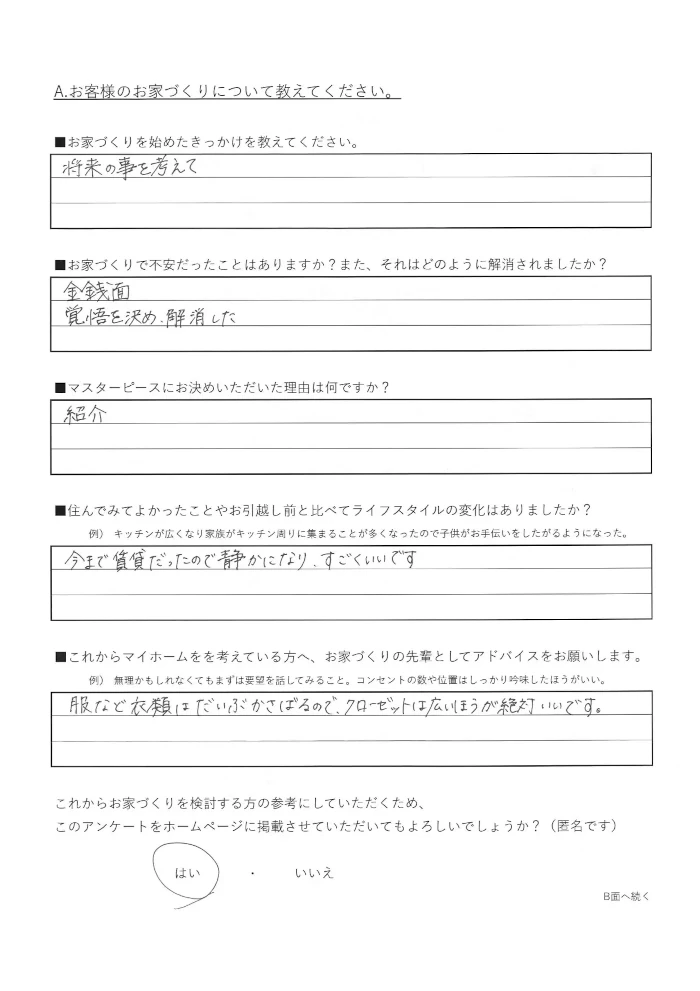 A.お客様のお家づくりについて教えてください。
■お家づくりを始めたきっかけを教えてください。
将来の事を考えて
■お家づくりで不安だったことはありますか？また、それはどのように解消されましたか？
金銭面
覚悟を決め、解消した
■マスターピースにお決めいただいた理由は何ですか？
紹介
■住んでみてよかったことやお引越し前と比べてライフスタイルの変化はありましたか？
例） キッチンが広くなり家族がキッチン周りに集まることが多くなったので子供がお手伝いをしたがるようになった。
今まで賃貸だったので静かになり、すごくいいです
■これからマイホームをを考えている方へ、お家づくりの先輩としてアドバイスをお願いします。
例） 無理かもしれなくてもまずは要望を話してみること。コンセントの数や位置はしっかり吟味したほうがいい。
服など衣類はだいぶかさばるので、クローゼットは広いほうが絶対いいです。
これからお家づくりを検討する方の参考にしていただくため、
このアンケートをホームページに掲載させていただいてもよろしいでしょうか？（匿名です）
はい ・ いいえ
B面へ続く